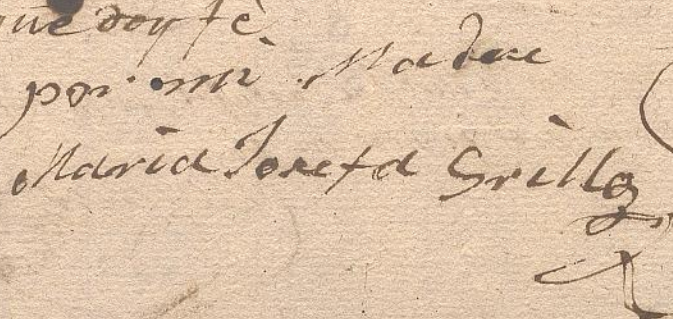 que doy fè
por mi Madre
Maria Josefa Grillo